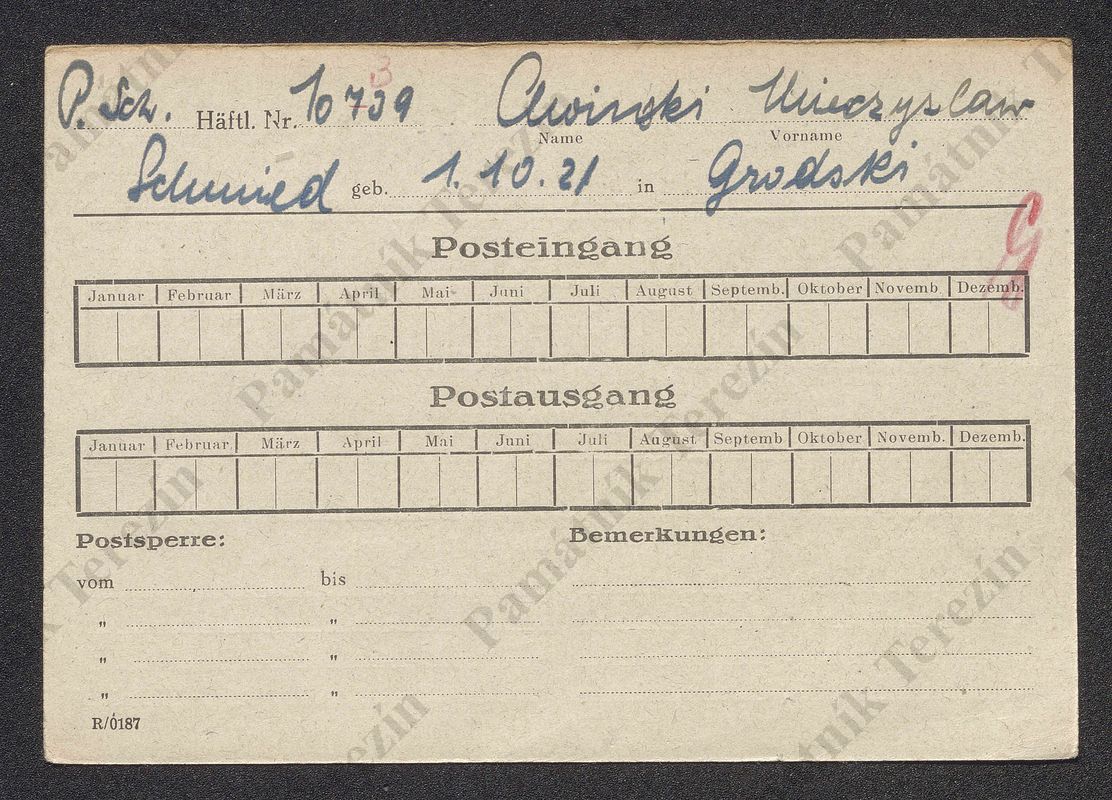 P. Sch. Häftl. Nr. 10739 B Clwinski Mieczyslaw
Name Vorname
Schmied geb. 1. 10. 21 in Grodski
G
Posteingang
Januar Februar März April Mai Juni Juli August Septemb. Oktober Novemb. Dezemb.
Postausgang
Januar Februar März April Mai Juni Juli August Septemb Oktober Novemb. Dezemb.
Postsperre: Bemerkungen:
vom bis
" "
" "
" "
R/0187
Památník Terezín